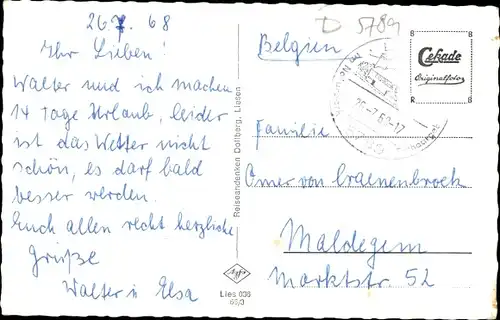 26.7. 68
Ihr Lieben!
Walter und ich machen
14 Tage Urlaub, leider
ist das Wetter nicht
schön, es darf bald
besser werden.
Euch allen recht herzliche
Grüße
Walter u Elsa
Reiseandenken Dollberg, Liesen
Agfa
Lies 036
66/3
D 5789
Belgien
26-7.68-17
Cekade
Originalfoto
Familie
Omer von Craenenbroek
Maldegem
Marktstr. 52